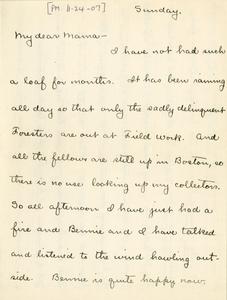 [PM 11-24-07] Sunday.
My dear Mama—
I have not had such
a loaf for months. It has been raining
all day so that only the sadly delinquent
Foresters are out at Field Work. And
all the fellows are still up in Boston, so
there is no use looking up my collectors.
So all afternoon I have just had a
fire and Bennie and I have talked
and listened to the wind howling out-
side. Bennie is quite happy now.